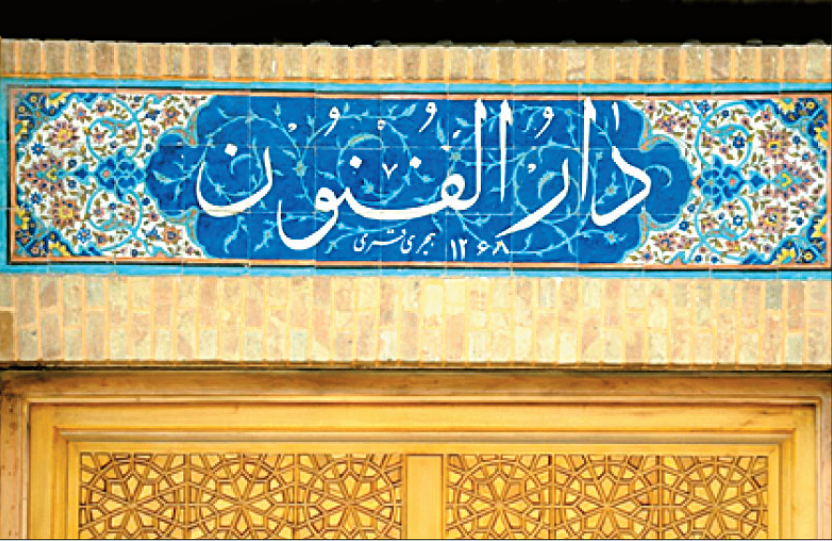 دارُ الفُنُون
۱۲۶۸ هجری قمری